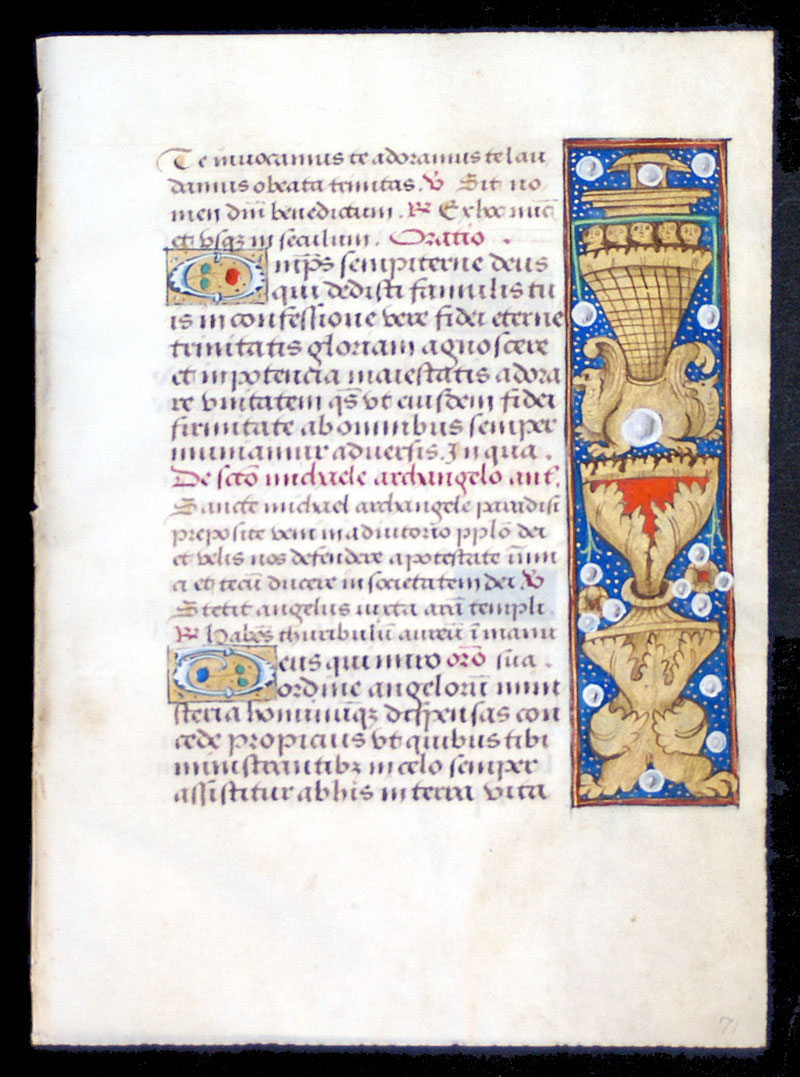 Te invocamus te adoramus te lau
damus o beata trinitas. V̄ Sit no
men dn̄i benedictum. R̄ Ex hoc nūc
et vsqꝫ in seculum. Oratio
Omp̄s sempiterne deus
qui dedisti famulis tu
is in confessione vere fidei eterne
trinitatis gloriam agnoscere
et in potencia maiestatis adora
re vnitatem qs̄ vt eiusdem fidei
firmitate ab omnibus semper
muniamur adversis. In qua.
De scto michaele archangelo ant̄.
Sancte michael archangele paradisi
preposite veni in adiutorio pplō dei
et velis nos defendere a potestate inimi
ci et tecū ducere in societatem dei V̄
Stetit angelus iuxta arā templi.
R̄ Habēs thuribulū aureū ī manu
Deus qui miro orō sua.
ordine angelorū mini
steria hominūqꝫ dispensas con
cede propicius vt quibus tibi
ministrantibꝫ in celo semper
assistitur ab his in terra vita
71